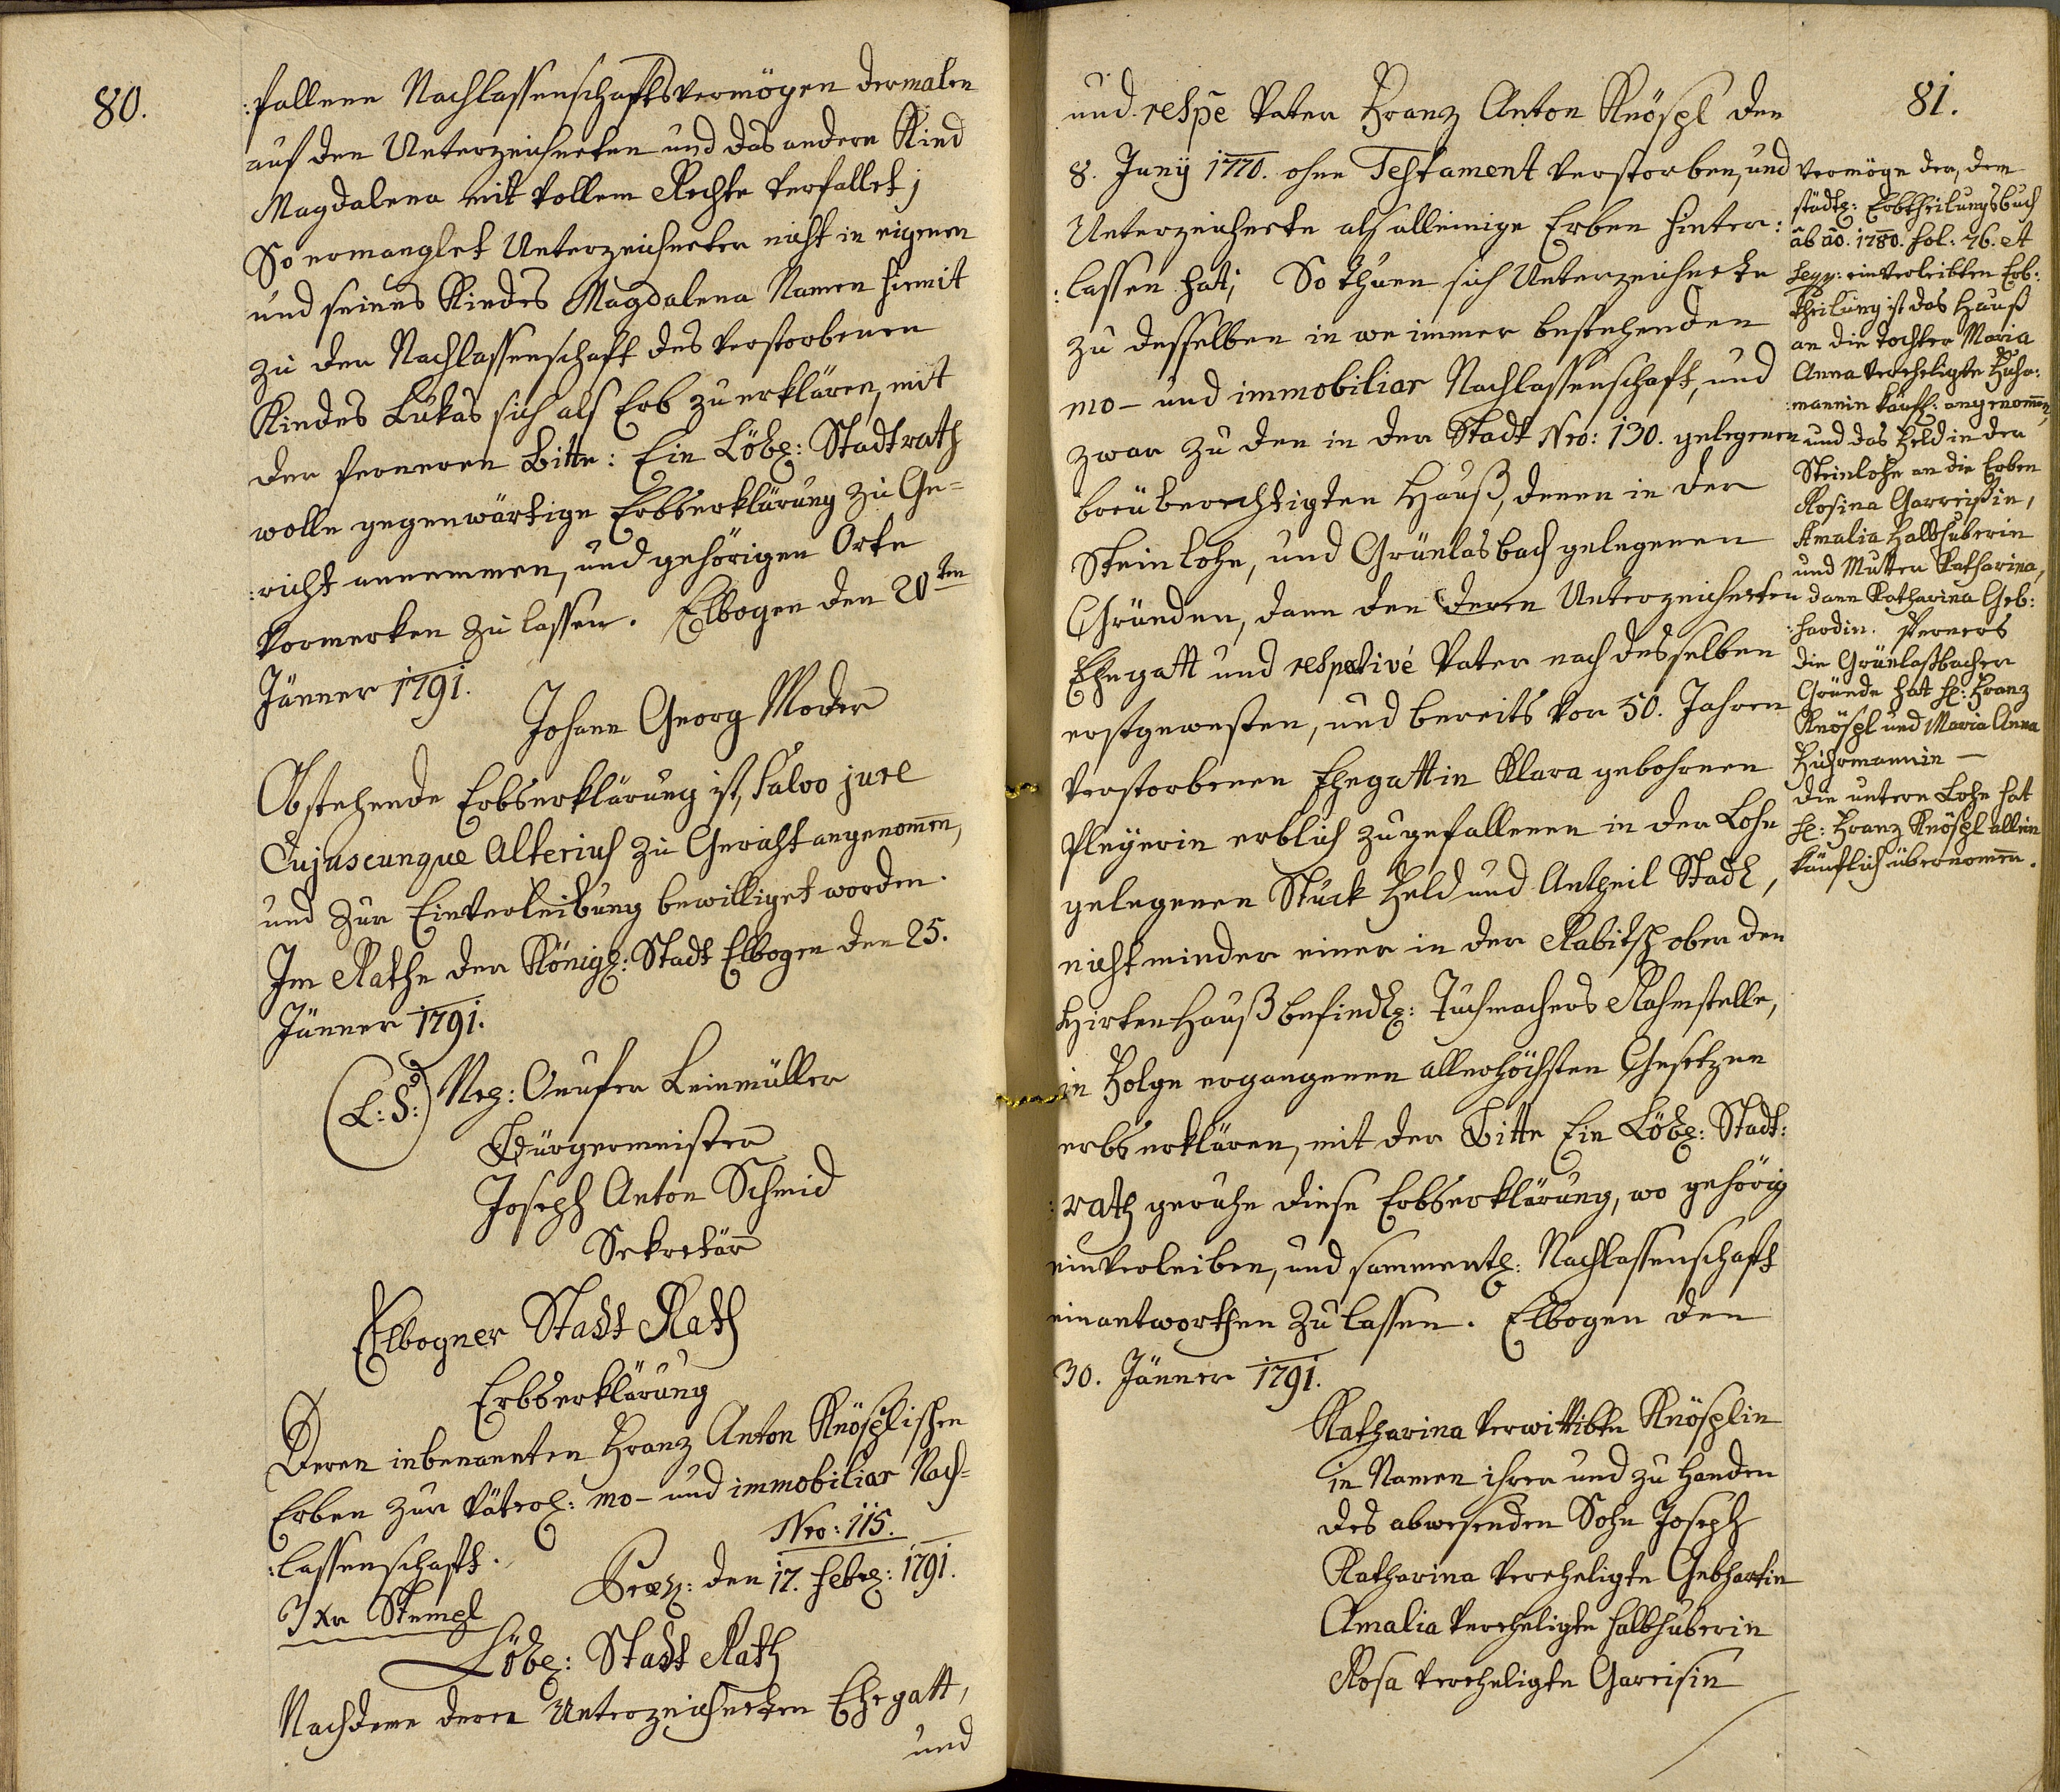 80.
:fallene Nachlassenschaftsvermögen dermalen
auf den Unterzeichneten und das andere Kind
Magdalena mit vollem Rechte verfallet;
So ermanglet Unterzeichneter nicht in eigenen
und seines Kindes Magdalena Namen hiemit
zu der Nachlassenschaft des verstorbenen
Kindes Lukas sich als Erb zu erklären, mit
der ferneren Bitte: Ein Löbl: Stadtrath
wolle gegenwärtige Erbserklärung zu Ge=
:richt annemmen, und gehörigen Orte
vormerken zu lassen. Elbogen den 20ten
Jänner 1791.
Johann Georg Moder
Obstehende Erbserklärung ist, Salvo jure
Cujuscunque Alterius zu Gericht angenom̄en,
und zur Einverleibung bewilliget worden.
Im Rathe der Königl: Stadt Elbogen den 25.
Jänner 1791.
(L: S:) Onufer Leinmüller
Bürgermeister
Joseph Anton Schmid
Sekretär
Elbogner Stadt Rath
Erbserklärung
Deren inbenannten Franz Anton Knösplischen
Erben zur Väterl: mo- und immobiliar Nach=
:lassenschaft.
Nro: 115.
3 Xr Stempl
Præs: den 17. Febr: 1791.
Löbl: Stadt Rath
Nachdeme deren Unterzeichneten Ehegatt,
und
81.
und respe Vater Franz Anton Knöspl den
8. Juny 1770. ohne Testament verstorben, und
Unterzeichnete als alleinige Erben hinter:
:lassen hat; So thuen sich Unterzeichnete
zu desselben in we immer bestehenden
mo- und immobiliar Nachlassenschaft, und
zwar zu den in der Stadt Nro: 130. gelegenen
breuberechtigten Hauß, denen in der
Steinlohe, und Grünlasbach gelegenen
Gründen, dann den deren Unterzeichneten
Ehegatt und respetivé Vater nach desselben
erstgewesten, und bereits vor 50. Jahren
verstorbenen Ehegattin Klara gebohrnen
Pleyerin erblich zugefallenen in der Lohe
gelegenen Stuck Feld und Antheil Stadl,
nicht minder einer in der Rabitsch ober den
Hirten Hauß befindl: Tuchmachers Rahmstelle,
in Folge ergangenen allerhöchsten Gesetzen
erbserklären, mit der Bitte Ein Löbl: Stadt:
:rath geruhe diese Erbserklärung, wo gehörig
einverleiben, und sammentl: Nachlassenschaft
einantworthen zu lassen. Elbogen den
30. Jänner 1791.
Katharina verwittibte Knösplin
in Namen ihrer und zu Handen
des abwesenden Sohn Joseph
Katharina vereheligte Gebhartin
Amalia vereheligte Halbhuberin
Rosa vereheligte Gareisin
Vermöge der, dem
städtl: Erbtheilungsbuch
ab ao. 1780. fol: 76. et
seqq: einverleibten Erb:
theilung ist das Hauß
an die Tochter Maria
Anna verehligte Fuhr:
:mannin käufl: angenom̄en,
und das Feld in der
Steinlohe an die Erben
Rosina Garreißin,
Amalia Halbhuberin
und Mutter Katharina,
dann Katharina Geb:
:hardin. Ferners
die Grünlaßbacher
Gründe hat H: Franz
Knöspl und Maria Anna
Fuhrmannin —
die untere Lohe hat
H: Franz Knöspl allein
käuflich übernom̄en.